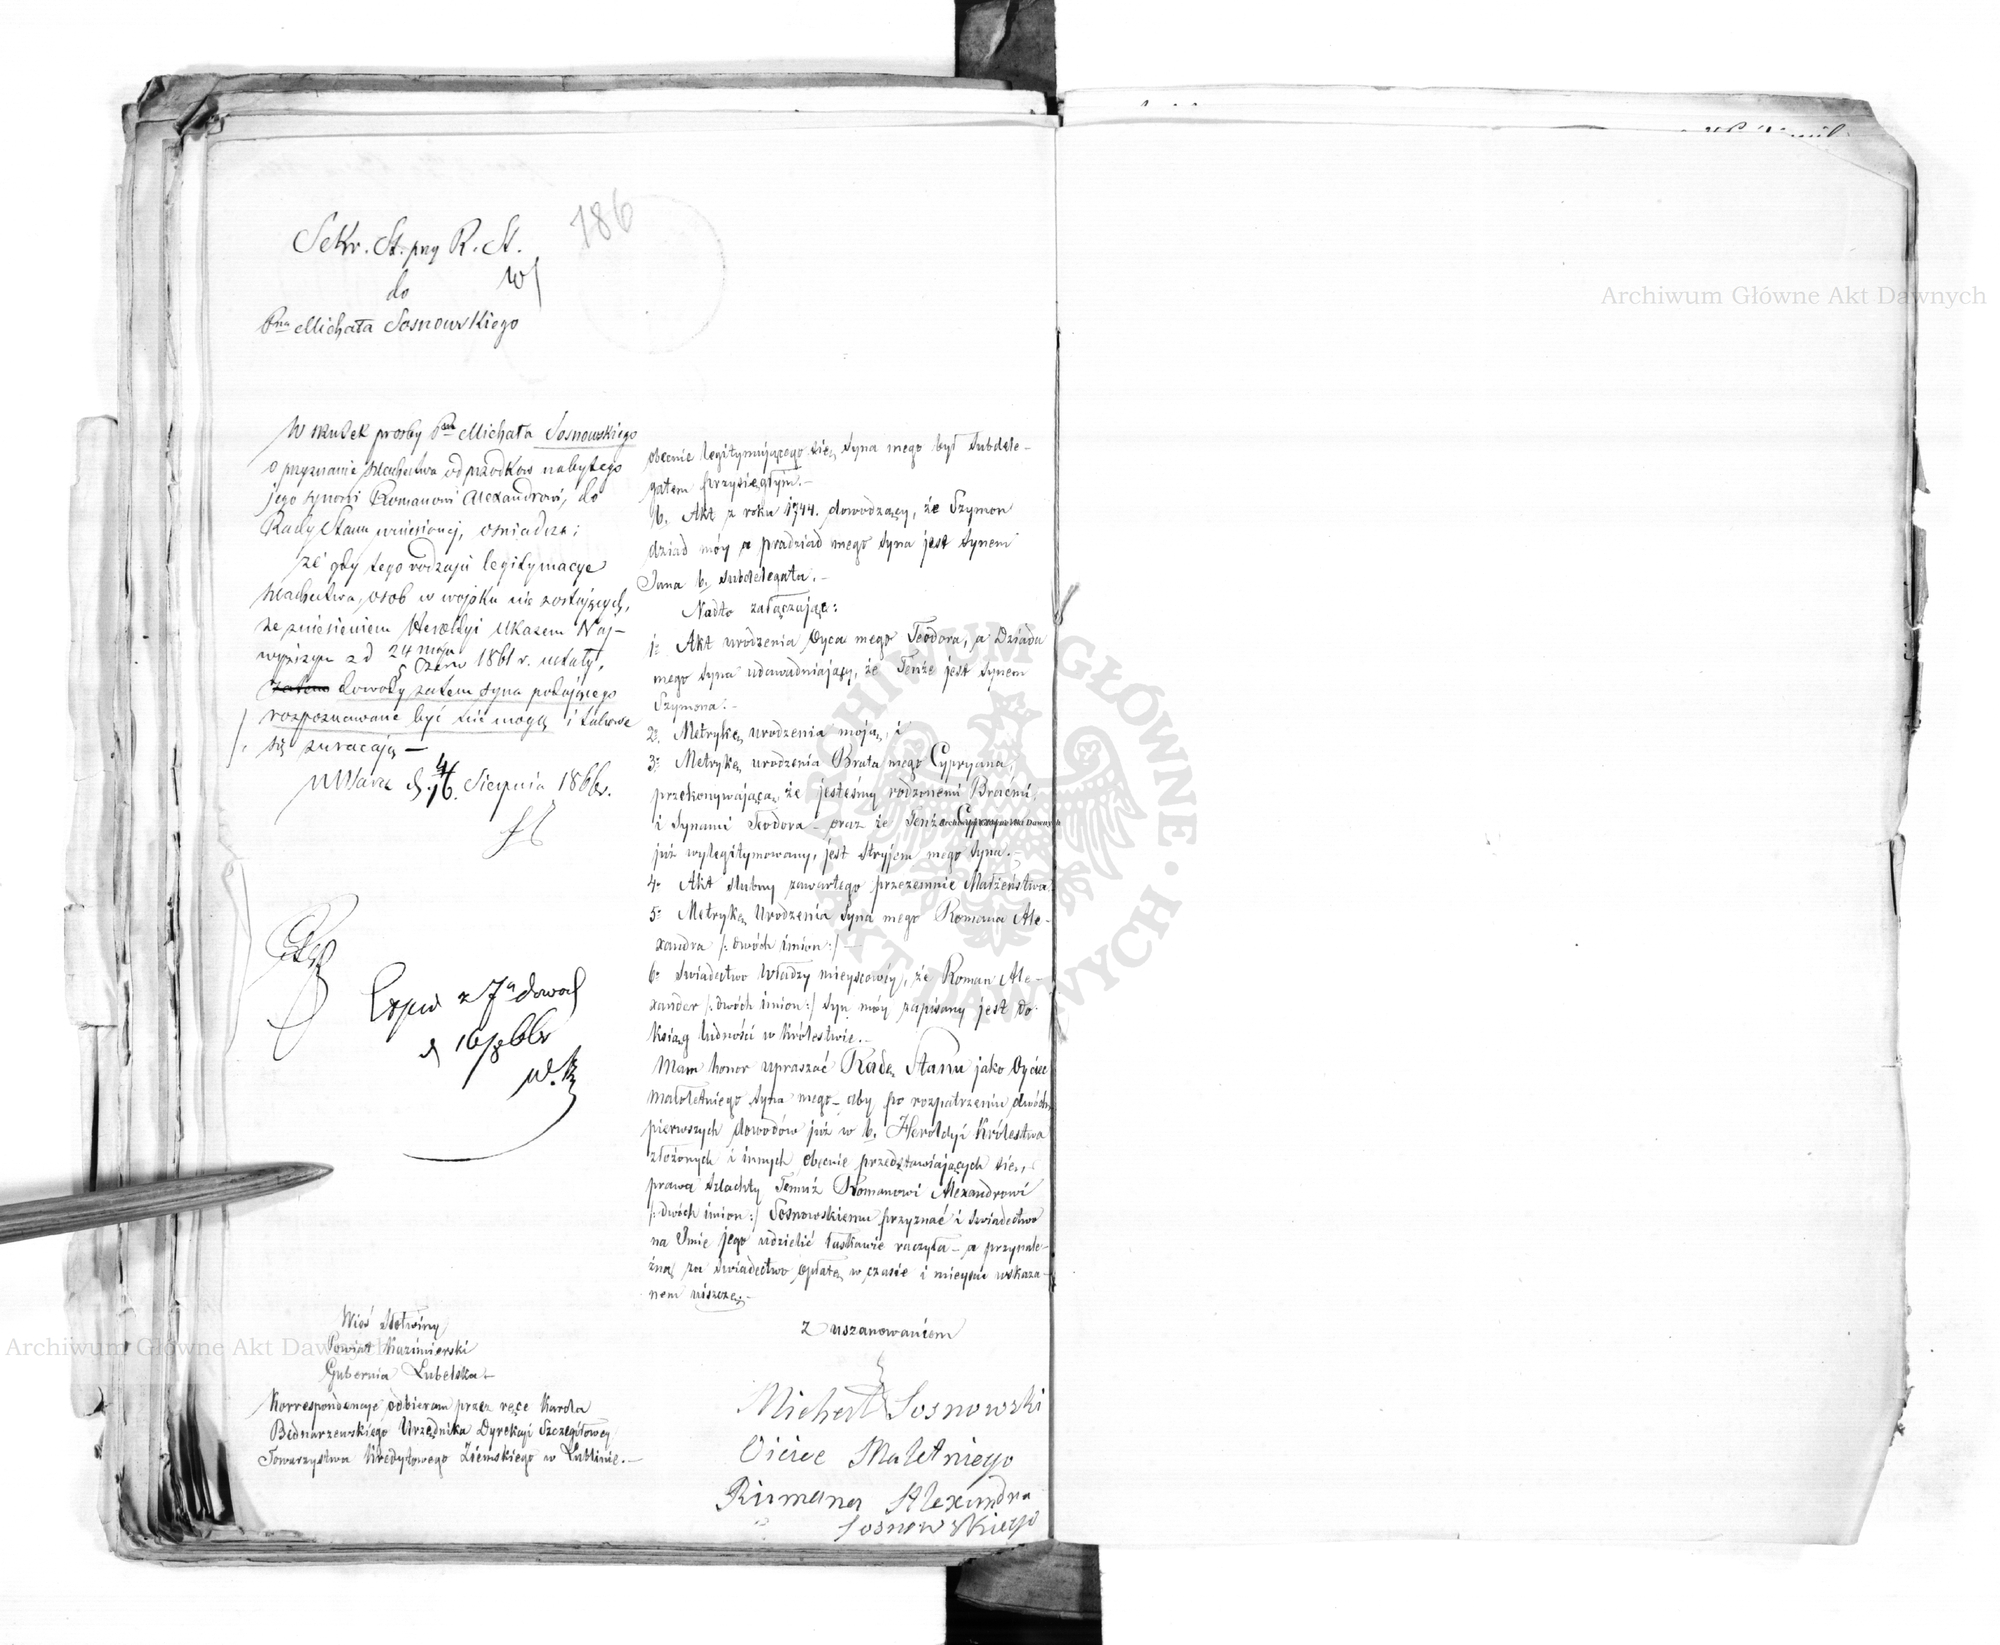 186
Sekr. St. przy R. St.
do
Pna Michała Sosnowskiego
W skutek prośby Pna Michała Sosnowskiego
o przyznanie szlachectwa od przodków nabytego
jego synowi Romanowi Alexandrowi, do
Rady Stanu wniesionej, oświadcza;
że gdy tego rodzaju legitymacye
szlachectwa, osób w wojsku nie zostających,
ze zniesieniem Heroldyi Ukazem Naj-
wyższym z d 24 maja
5 Czerw 1861 r. ustały,
zatem dowody zatem syna
rozpoznawane być nie mogą i takowe
się zwracają —
w Warsz d. 4/16. Sierpnia 1866 r.
Exped z 7a dowod
d 16/8 66 r
Wieś
Powiat Kazimierski
Gubernia Lubelska
Korrespondencje odbieram przez ręce Karola
Bednarzewskiego Urzędnika Dyrekcji Szczegółowey
Towarzystwa Kredytowego Ziemskiego w Lublinie. —
obecnie legitymującego się, Syna mego był Subdele-
gatem przysięgłym. —
b. Akt z roku 1744. dowodzący, że Szymon
dziad móy a pradziad mego Syna jest Synem
Jana b. Subdelegata. —
Nadto załączając:
1o Akt urodzenia Oyca mego Teodora, a Dziadu
mego Syna udowadniający, że Tenże jest Synem
Szymona. —
2o. Metrykę urodzenia moją, i
3o Metrykę urodzenia Brata mego Cypryana,
przekonywającą, że jesteśmy rodzonemi Braćmi,
i Synami Teodora — oraz że Tenże Cypryan
już wylegitymowany, jest Stryjem mego Syna. —
4o Akt slubny zawartego przezemnie Małżeństwa
5o Metrykę Urodzenia Syna mego Romana Ale-
xandra /: dwóch imion :/ —
6o Swiadectwo Władzy mieyscowéy, że Roman Ale-
xander /: dwóch imion :/ Syn móy zapisany jest do
Ksiąg ludności w Królestwie. —
Mam honor upraszać Radę Stanu jako Oyciec
małoletniego Syna mego — aby po rozpatrzeniu dwóch
pierwszych dowodów już w b. Heroldyi Królestwa
złożonych i innych obecnie przedstawiających się,
prawa Szlachty Temuż Romanowi Alexandrowi
/: dwóch imion :/ Sosnowskiemu przyznać i swiadectwo
na Imie jego udzielić łaskawie raczyła — a przynale-
żną za swiadectwo opłatę w czasie i mieyscu wskaza-
nem uiszczę. —
Z uszanowaniem
Michał Sosnowski
Oiciec Małetniego
Rumana Alexandra
Sosnowskiego
Archiwum Główne Akt Dawnych
Archiwum Główne Akt Dawnych
Archiwum Główne Akt Dawnych
ARCHIWUM GŁÓWNE · AKT DAWNYCH ·